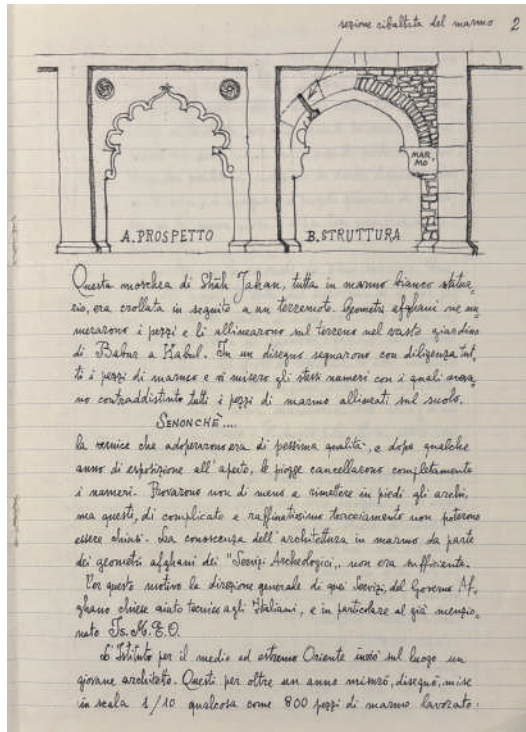 sezione ribaltata del marmo 2
MAR,
MO
A. PROSPETTO B. STRUTTURA
Questa moschea di Shāh Jahan, tutta in marmo bianco statua,
rio, era crollata in seguito a un terremoto. Geometri afghani ne nu,
merarono i pezzi e li allinearono sul terreno nel vasto giardino
di Babur a Kabul. In un disegno segnarono con diligenza tut,
ti i pezzi di marmo e vi misero gli stessi numeri con i quali aveva,
no contraddistinto tutti i pezzi di marmo allineati sul suolo.
SENONCHÈ....
la vernice che adoperarono era di pessima qualità, e dopo qualche
anno di esposizione all'aperto, le piogge cancellarono completamente
i numeri. Provarono non di meno a rimettere in piedi gli archi,
ma questi, di complicato e raffinatissimo torcimento non poterono
essere chiusi. La conoscenza dell'architettura in marmo da parte
dei geometri afghani dei "Servizi Archeologici,, non era sufficiente.
Per questo motivo la direzione generale di quei Servizi, del Governo Af,
ghano chiese aiuto tecnico agli Italiani, e in particolare al già menzio,
nato Is.M.E.O.
L'Istituto per il medio ed estremo Oriente inviò sul luogo un
giovane architetto. Questi per oltre un anno misurò, disegnò, mise
in scala 1/10 qualcosa come 800 pezzi di marmo lavorato: